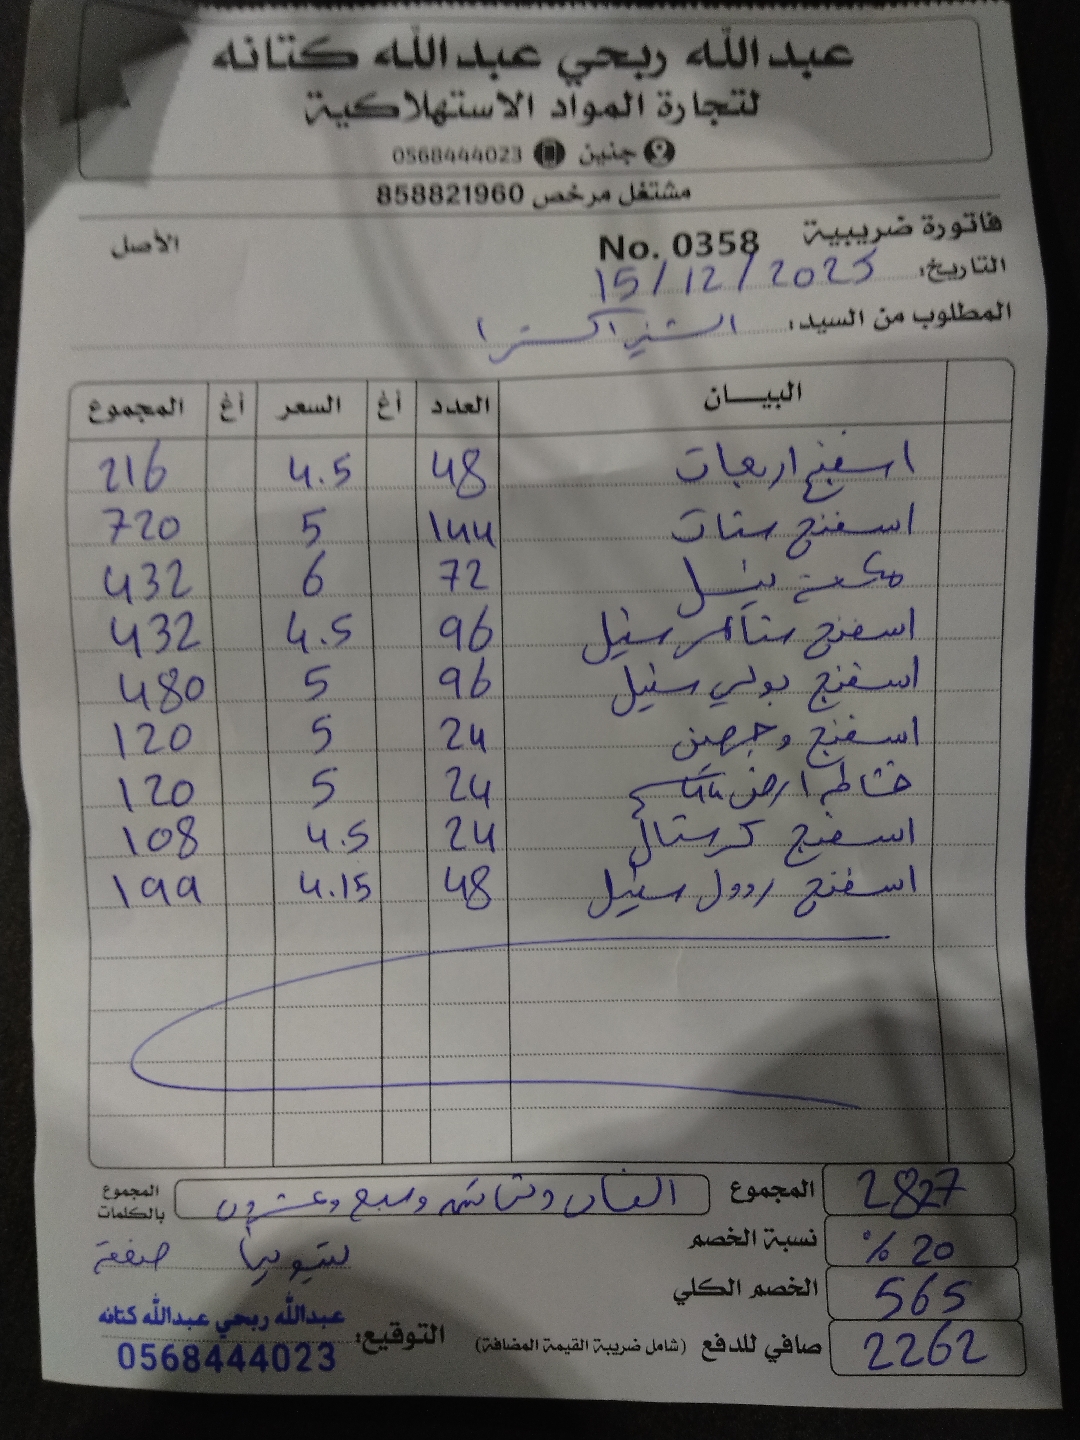 عبدالله ربحي عبدالله كتانه
لتجارة المواد الاستهلاكية
جنين 0568444023
مشتغل مرخص 858821960
فاتورة ضريبية No. 0358 الأصل
التاريخ: 15/12/2025
المطلوب من السيد: اكسترا
البيـــان العدد أغ السعر أغ المجموع
اسفنج اربعات 48 4.5 216
اسفنج ستات 144 5 720
72 6 432
اسفنج ستيل 96 4.5 432
اسفنج بولي ستيل 96 5 480
اسفنج وجهين 24 5 120
ارض 24 5 120
اسفنج كرستال 24 4.5 108
اسفنج ستيل 48 4.15 199
المجموع 2827
المجموع بالكلمات الفان وثمانمئة وسبع وعشرون
نسبة الخصم % 20
الخصم الكلي 565
صافي للدفع (شامل ضريبة القيمة المضافة) 2262
التوقيع: عبدالله ربحي عبدالله كتانه
0568444023